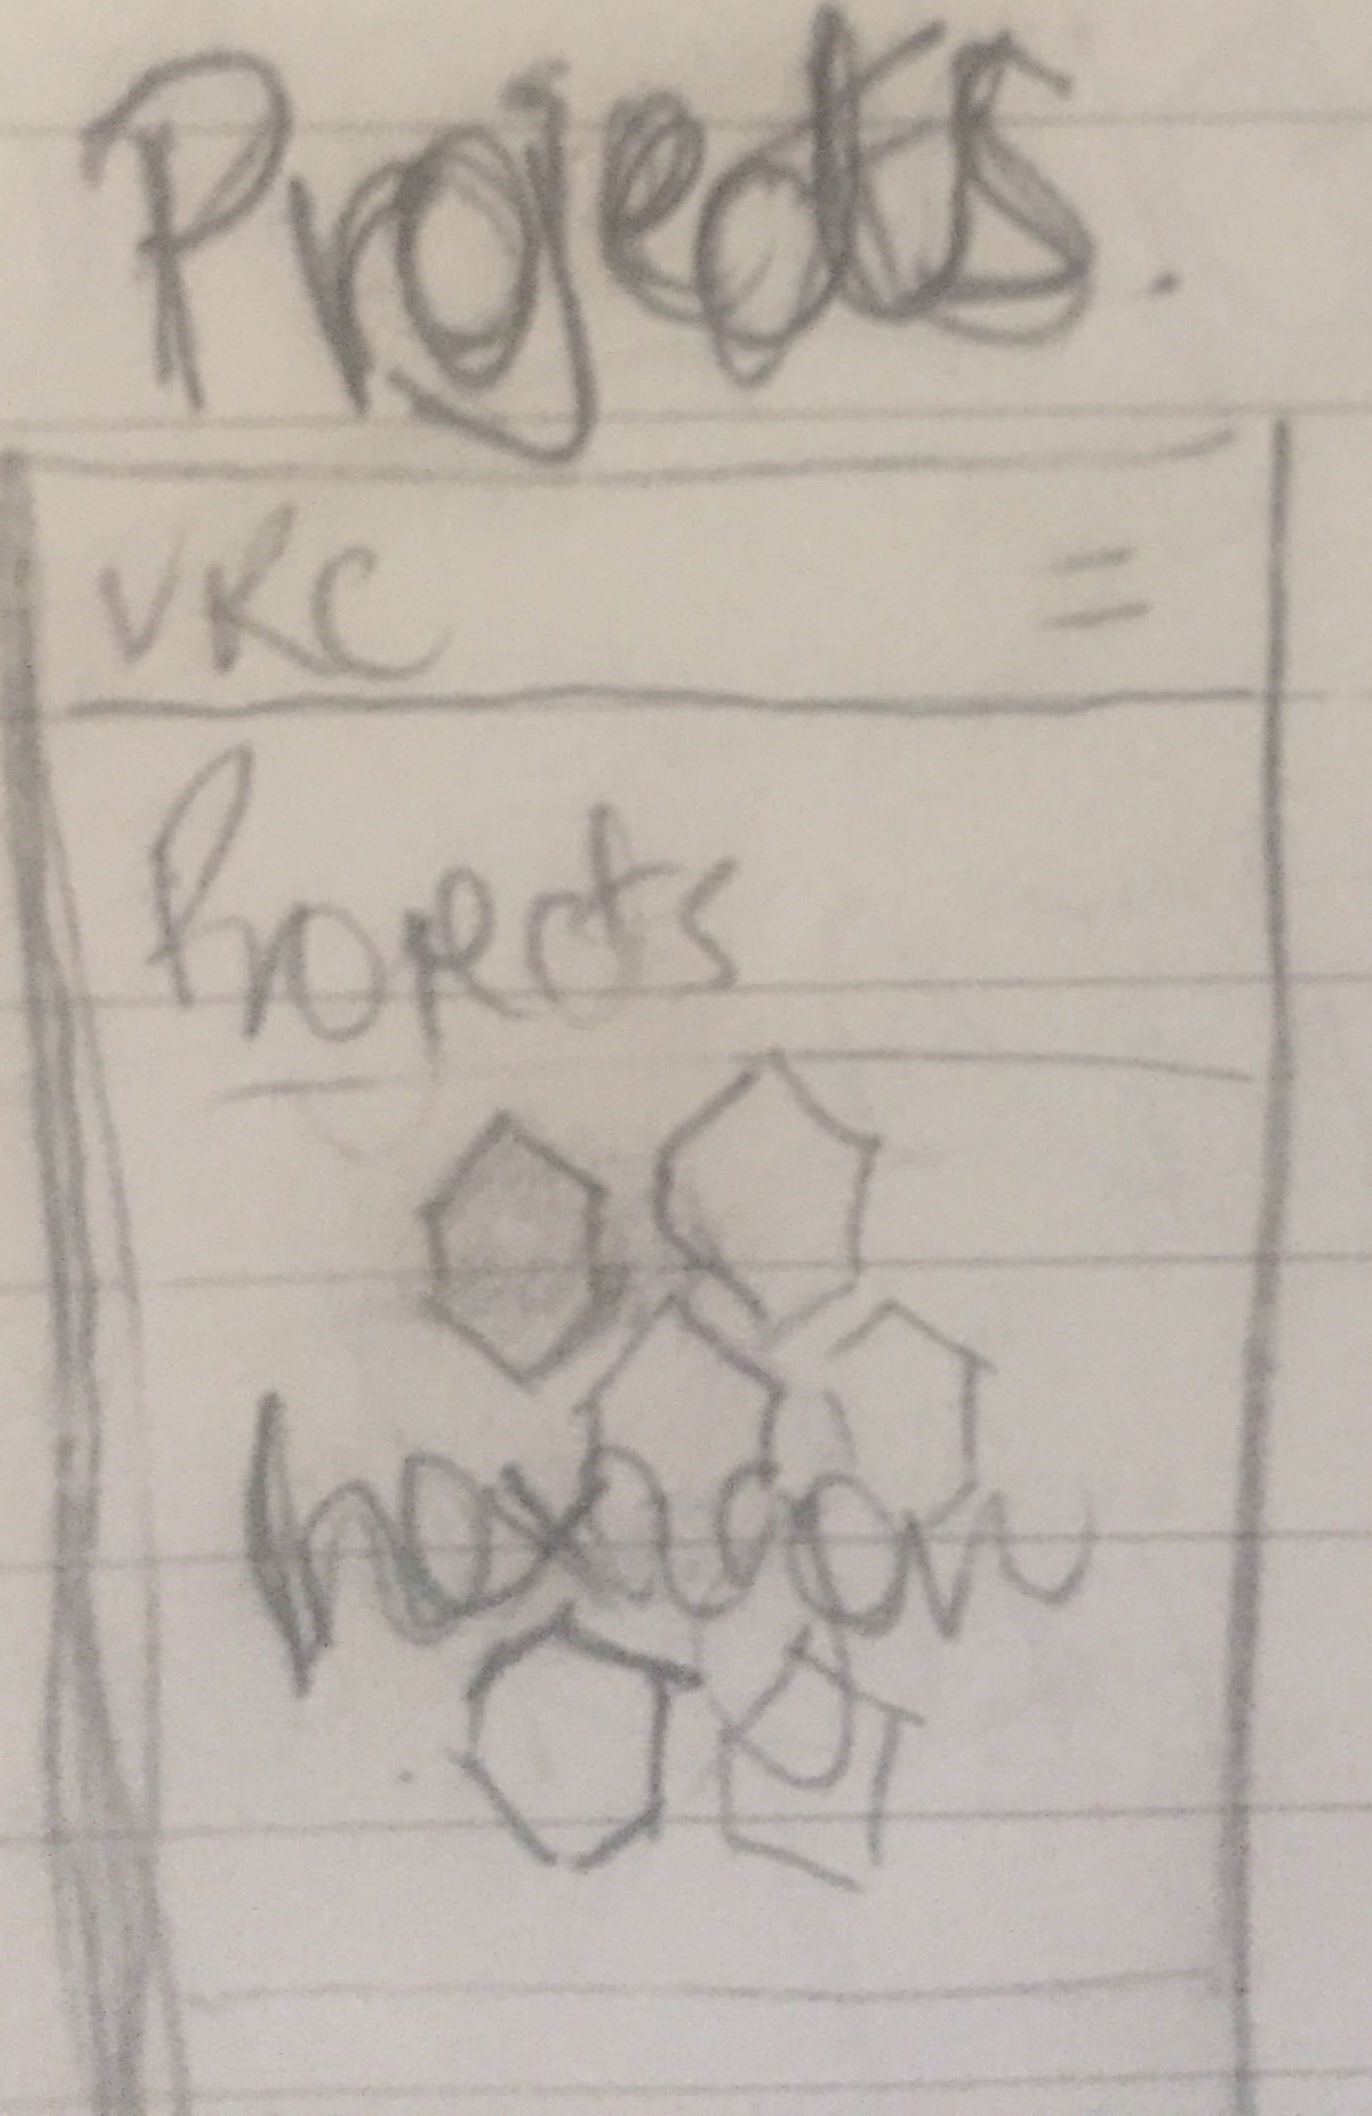 Projects.
VRC
Projects
hexagon